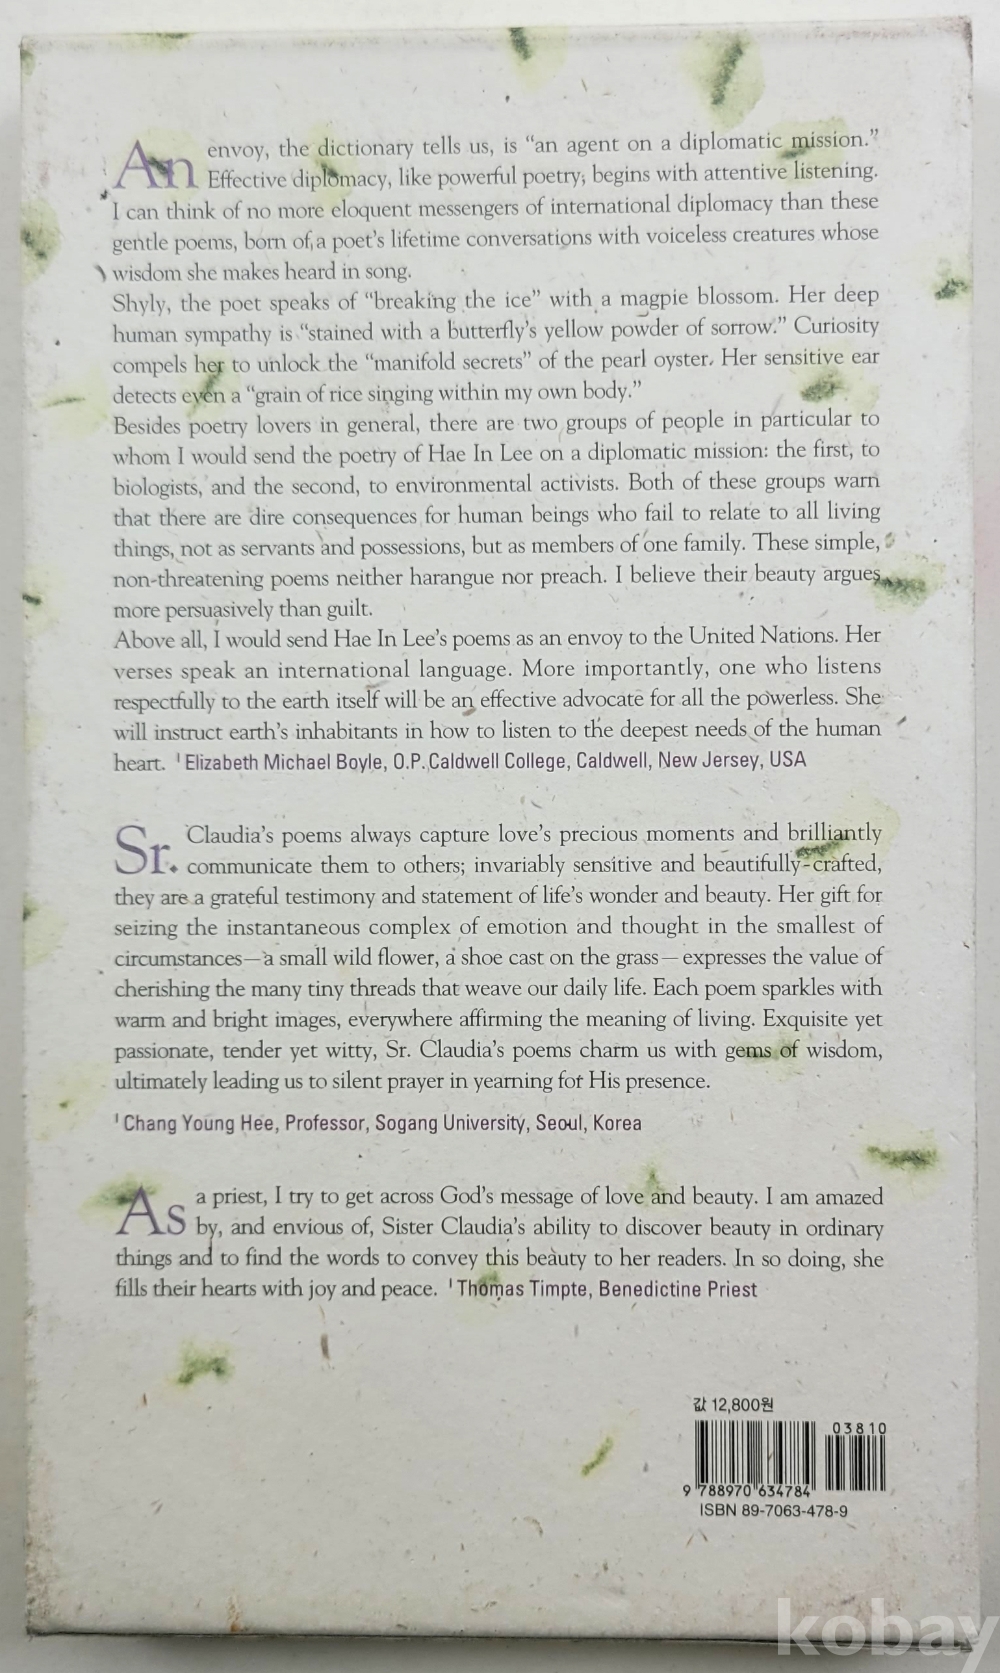 An envoy, the dictionary tells us, is “an agent on a diplomatic mission.”
Effective diplomacy, like powerful poetry, begins with attentive listening.
I can think of no more eloquent messengers of international diplomacy than these
gentle poems, born of a poet’s lifetime conversations with voiceless creatures whose
wisdom she makes heard in song.
Shyly, the poet speaks of “breaking the ice” with a magpie blossom. Her deep
human sympathy is “stained with a butterfly’s yellow powder of sorrow.” Curiosity
compels her to unlock the “manifold secrets” of the pearl oyster. Her sensitive ear
detects even a “grain of rice singing within my own body.”
Besides poetry lovers in general, there are two groups of people in particular to
whom I would send the poetry of Hae In Lee on a diplomatic mission: the first, to
biologists, and the second, to environmental activists. Both of these groups warn
that there are dire consequences for human beings who fail to relate to all living
things, not as servants and possessions, but as members of one family. These simple,
non-threatening poems neither harangue nor preach. I believe their beauty argues
more persuasively than guilt.
Above all, I would send Hae In Lee’s poems as an envoy to the United Nations. Her
verses speak an international language. More importantly, one who listens
respectfully to the earth itself will be an effective advocate for all the powerless. She
will instruct earth’s inhabitants in how to listen to the deepest needs of the human
heart. ǀ Elizabeth Michael Boyle, O.P. Caldwell College, Caldwell, New Jersey, USA
Sr. Claudia’s poems always capture love’s precious moments and brilliantly
communicate them to others; invariably sensitive and beautifully-crafted,
they are a grateful testimony and statement of life’s wonder and beauty. Her gift for
seizing the instantaneous complex of emotion and thought in the smallest of
circumstances—a small wild flower, a shoe cast on the grass—expresses the value of
cherishing the many tiny threads that weave our daily life. Each poem sparkles with
warm and bright images, everywhere affirming the meaning of living. Exquisite yet
passionate, tender yet witty, Sr. Claudia’s poems charm us with gems of wisdom,
ultimately leading us to silent prayer in yearning for His presence.
ǀ Chang Young Hee, Professor, Sogang University, Seoul, Korea
As a priest, I try to get across God’s message of love and beauty. I am amazed
by, and envious of, Sister Claudia’s ability to discover beauty in ordinary
things and to find the words to convey this beauty to her readers. In so doing, she
fills their hearts with joy and peace. ǀ Thomas Timpte, Benedictine Priest
값 12,800원
03810
9 788970 634784
ISBN 89-7063-478-9
kobay